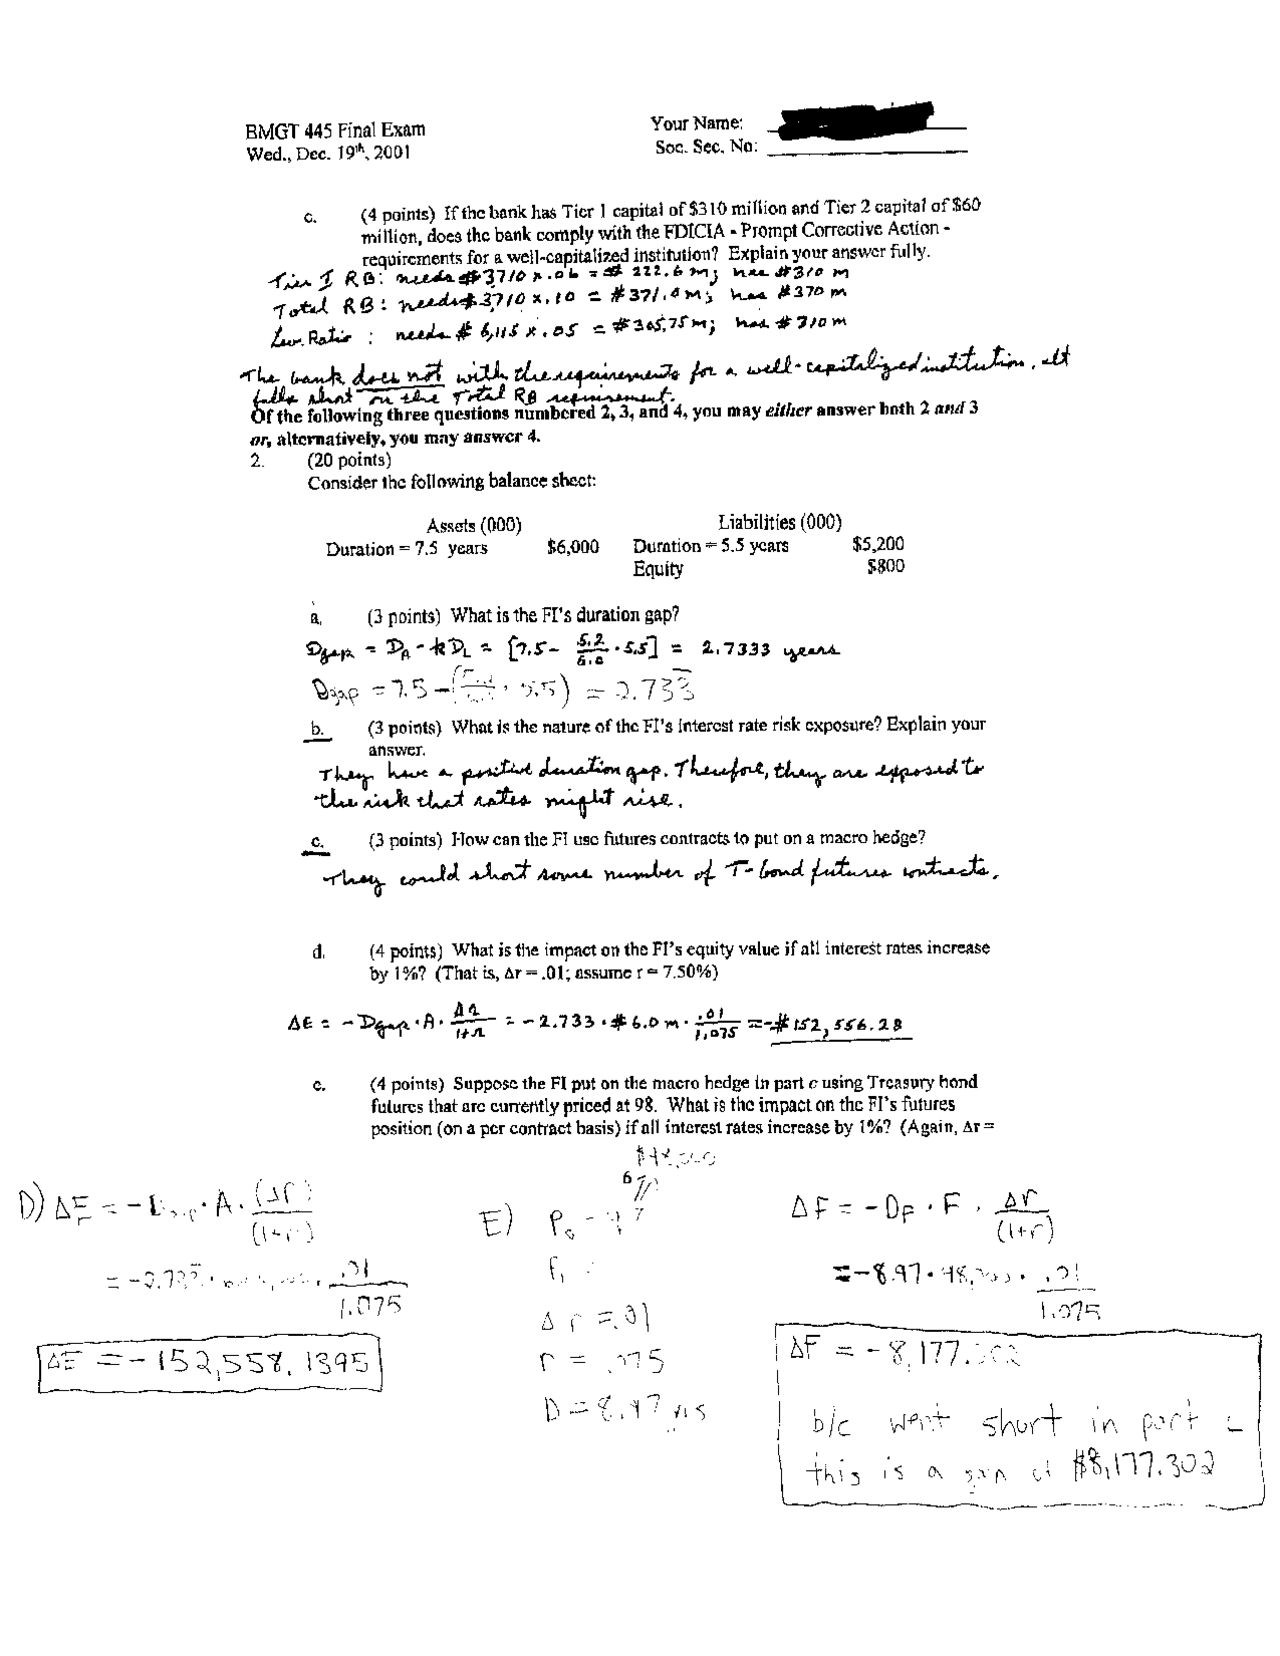 BMGT 445 Final Exam
Your Name:
Wed., Dec. 19th, 2001
Soc. Sec. No:
c. (4 points) If the bank has Tier 1 capital of $310 million and Tier 2 capital of $60
million, does the bank comply with the FDICIA - Prompt Corrective Action -
requirements for a well-capitalized institution? Explain your answer fully.
Tier I RB: needs $3710 x .06 = $ 222.6 m; has $310 m
Total RB: needs $3,710 x .10 = $371.0m; has $370 m
Lev. Ratio : needs $ 6,115 x .05 = $305.75m; has $310m
The bank does not with the requirements for a well-capitalized institution. It
falls short on the Total RB requirement.
Of the following three questions numbered 2, 3, and 4, you may either answer both 2 and 3
or, alternatively, you may answer 4.
2. (20 points)
Consider the following balance sheet:
Assets (000) Liabilities (000)
Duration = 7.5 years $6,000 Duration = 5.5 years $5,200
Equity $800
a. (3 points) What is the FI's duration gap?
Dgap = DA - kDL = [7.5 - 5.2/6.0 · 5.5] = 2.7333 years
Dgap = 7.5 - ( · 5.5) = 2.733
b. (3 points) What is the nature of the FI's interest rate risk exposure? Explain your
answer.
They have a positive duration gap. Therefore, they are exposed to
the risk that rates might rise.
c. (3 points) How can the FI use futures contracts to put on a macro hedge?
They could short some number of T-bond futures contracts.
d. (4 points) What is the impact on the FI's equity value if all interest rates increase
by 1%? (That is, Δr = .01; assume r = 7.50%)
ΔE = - Dgap · A · Δr/1+r = - 2.733 · $6.0 m · .01/1.075 = -$152,556.28
e. (4 points) Suppose the FI put on the macro hedge in part c using Treasury bond
futures that are currently priced at 98. What is the impact on the FI's futures
position (on a per contract basis) if all interest rates increase by 1%? (Again, Δr =
6
D) ΔE = - Dgap · A · (Δr)/(1+r)
= -2.733 · .01/1.075
ΔE = -152,558.1395
E)
Δr = .01
r = .075
D = 8.97 yrs
ΔF = -DF · F · Δr/(1+r)
= -8.97 · 98,000 · .01/1.075
ΔF = -8,177.302
b/c went short in part c
this is a gain of $8,177.302